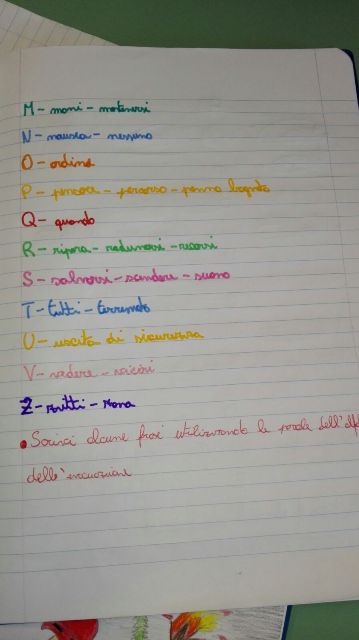 M - mani - mettersi
N - nausea - nessuno
O - ordine
P - percorso - panno bagnato
Q - quando
R - ripara - radunarsi - recarsi
S - salvarsi - scendere - suono
T - tutti - terremoto
U - uscita di sicurezza
V - vedere - vicini
Z - zitti - zona
• Scrivi alcune frasi utilizzando le parole dell'alf
dell'evacuazione